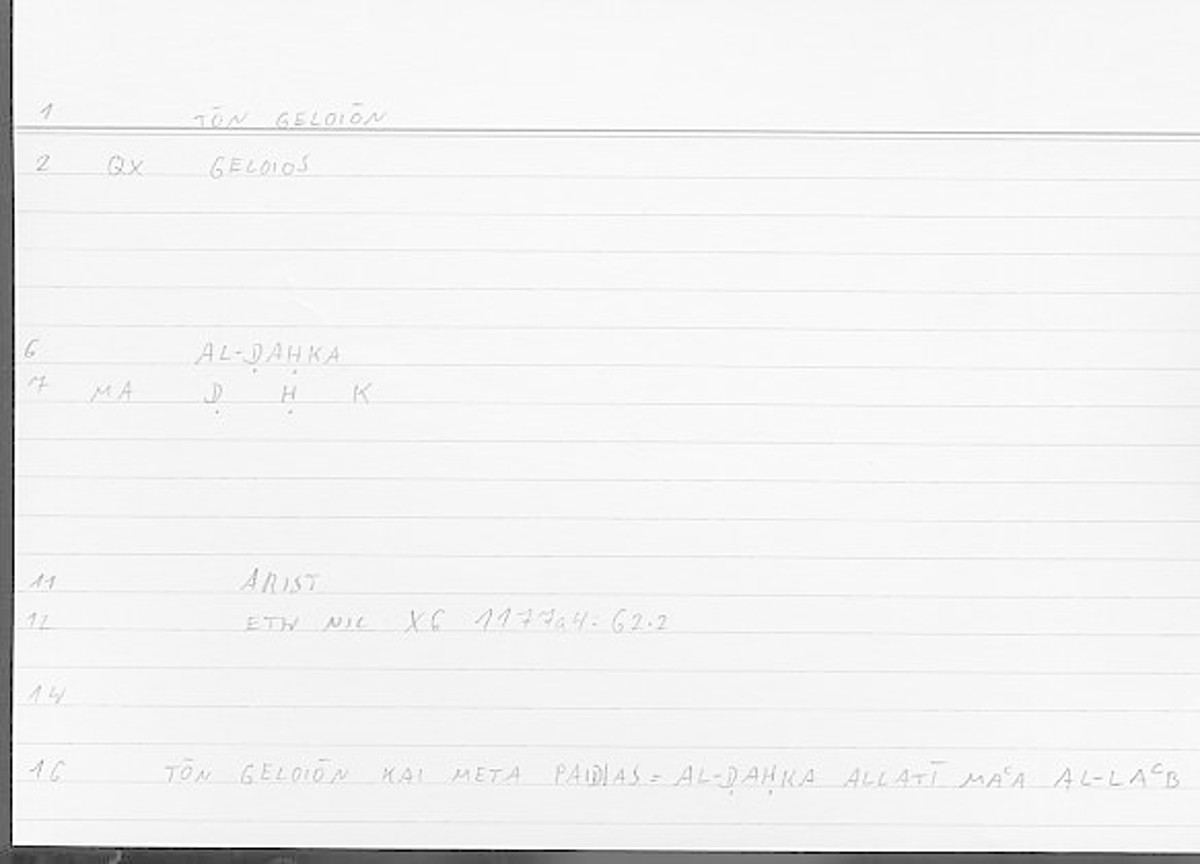 1 TŌN GELOIŌN
2 QX GELOIOS
6 AL-ḌAḤKA
7 MA Ḍ Ḥ K
11 ARIST
12 ETH NIC X6 1177a4: 62.2
14
16 TŌN GELOIŌN KAI META PAIDIAS = AL-ḌAḤKA ALLATĪ MAʿA AL-LAʿB